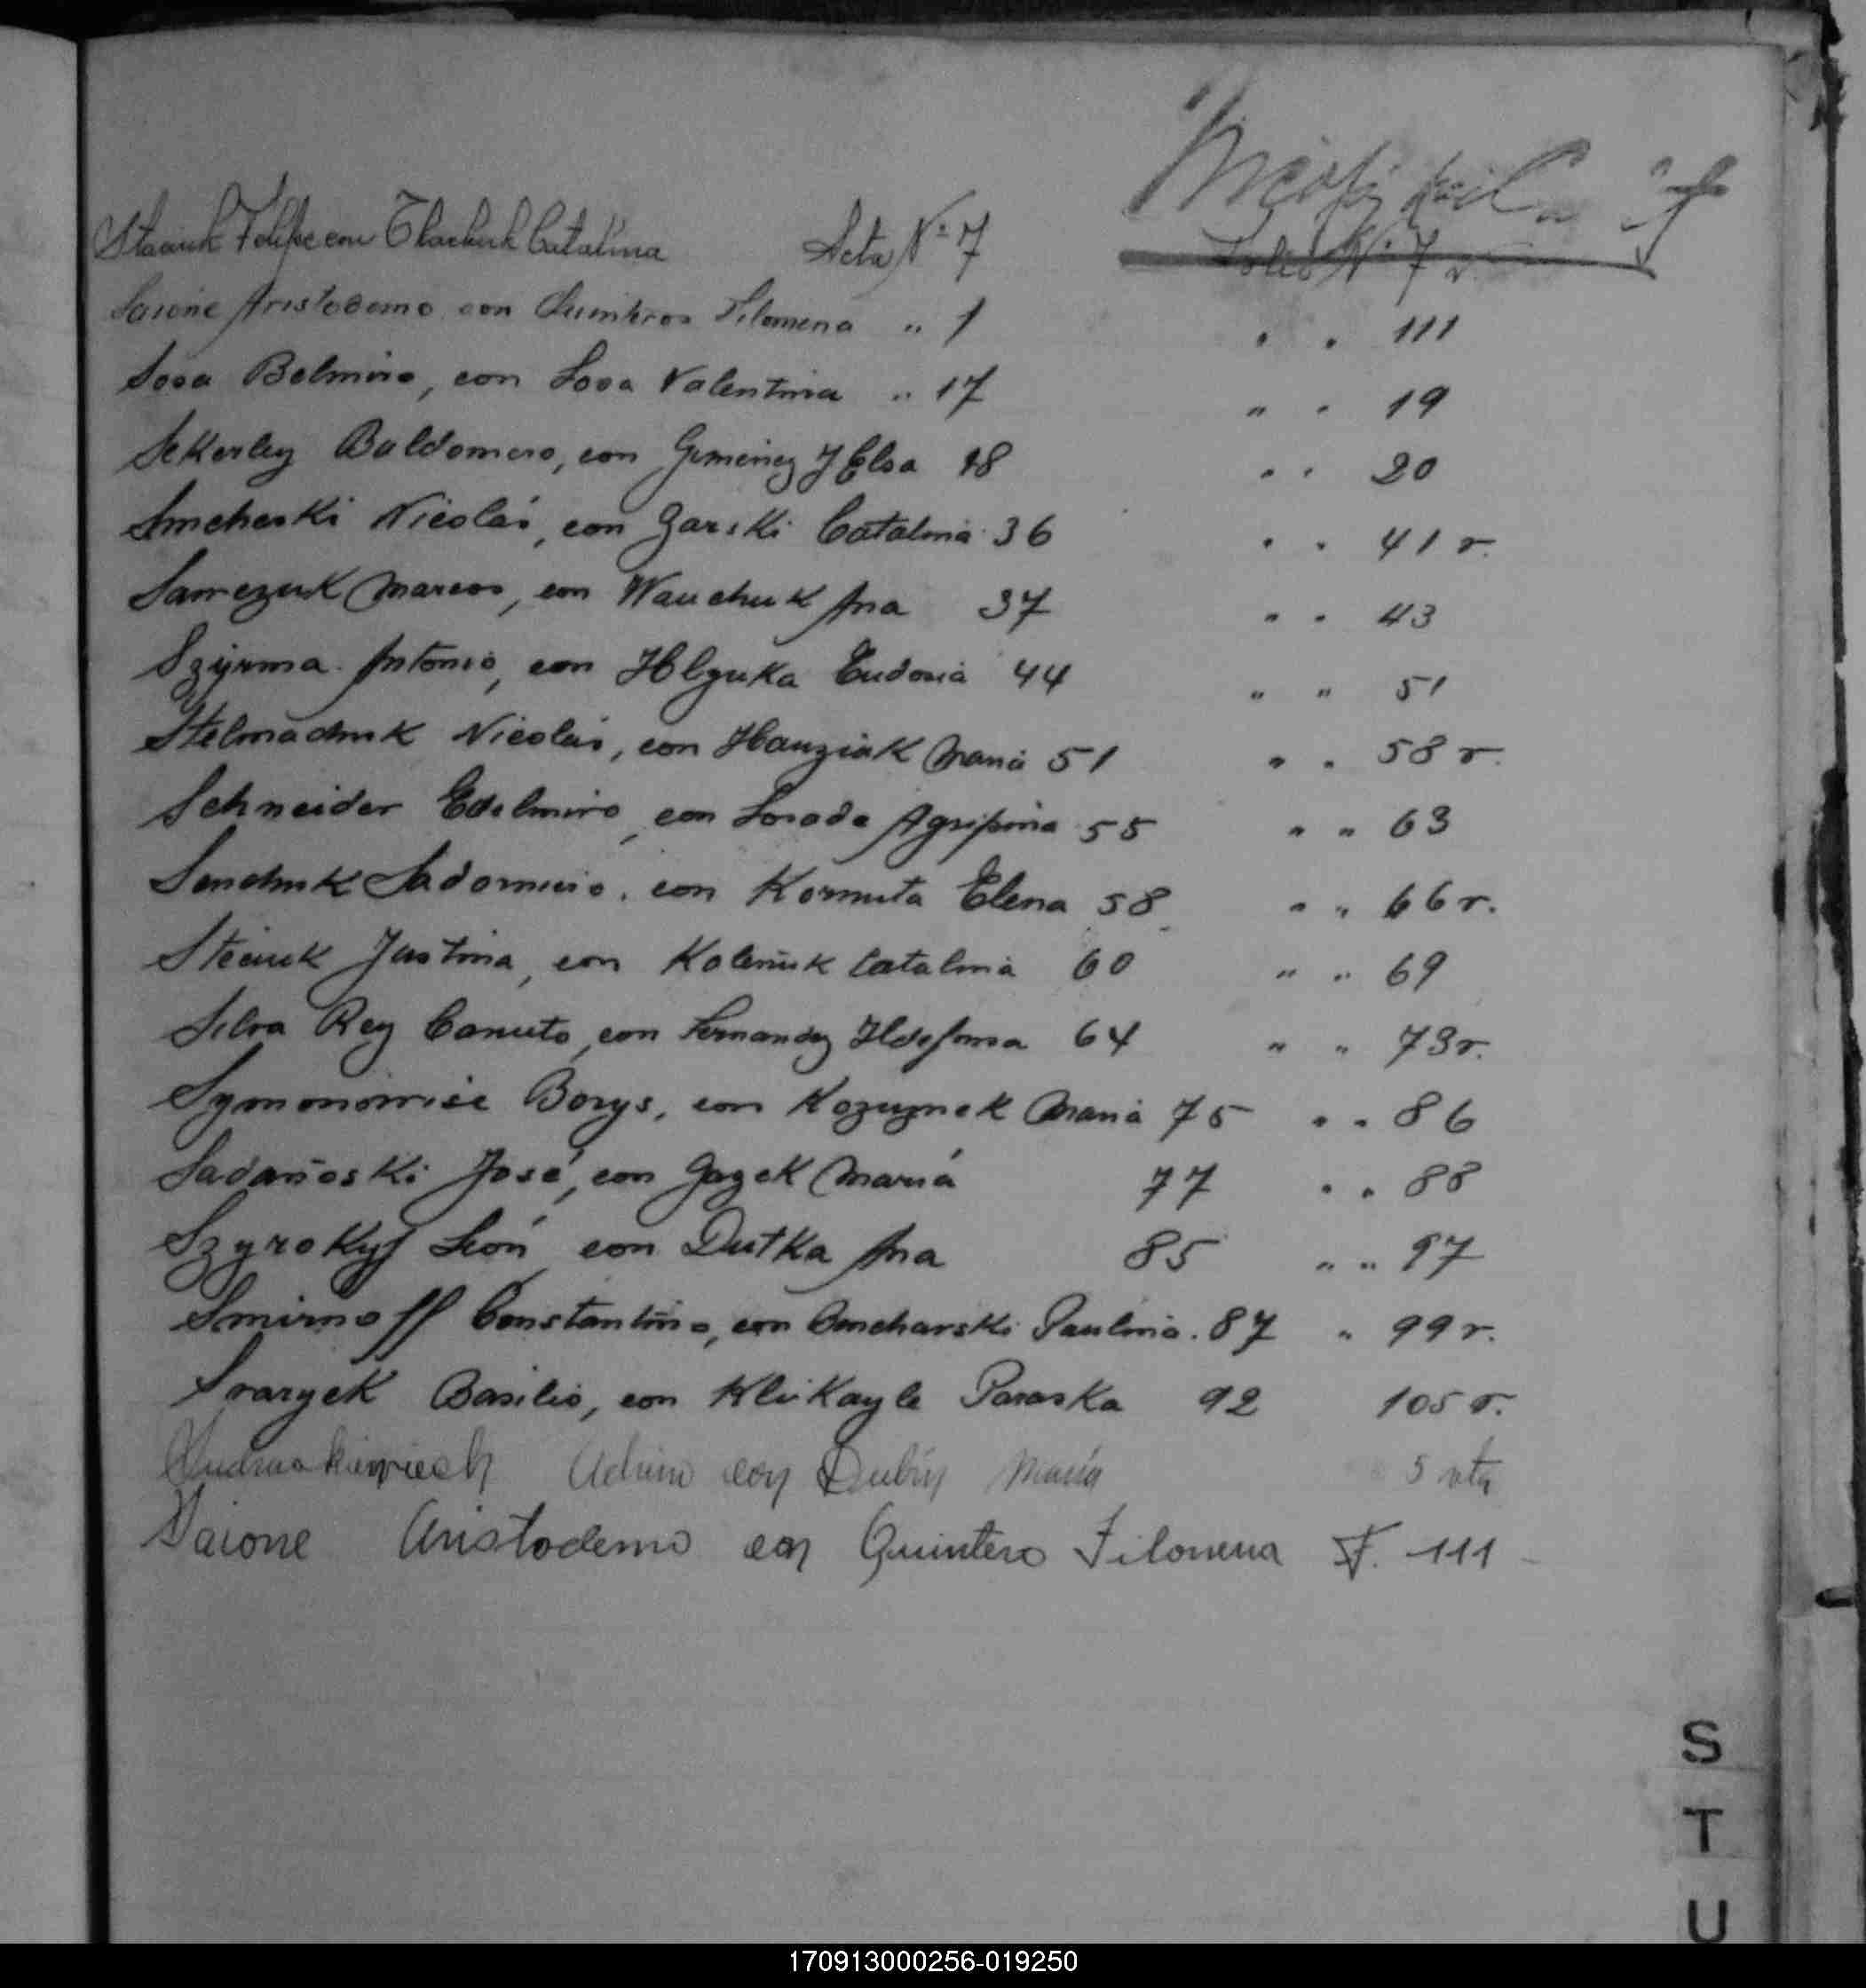 Felipe con Catalina Acta Nº 7 Folio Nº 7 v.
Saione Aristodemo con Filomena " 1 " " 111
Sosa Belmiro, con Sosa Valentina " 17 " " 19
Sekerley Baldomero, con Gimenez J Elsa 18 " " 20
Smcheski Nicolás, con Garski Catalina 36 " " 41 r.
Samczuk Marcos, con Wauchuk Ana 37 " " 43
Szyrma Antonio, con Hlyuka Eudosia 44 " " 51
Stelmachuk Nicolás, con Hauziak Maria 51 " " 58 r.
Schneider Edelmiro, con Losada Agripina 55 " " 63
Senchuk con Kornuta Elena 58 " " 66 r.
Steciuk Justina, con Koleñuk Catalina 60 " " 69
Silva Rey Canuto, con Fernandez Ildefonsa 64 " " 73 r.
Borys, con Maria 75 " " 86
Sadañoski José, con Gazek María 77 " " 88
Szyrokyj León con Dutka Ana 85 " " 97
Smirnoff Constantino, con Omcharski Paulina. 87 " 99 r.
Basilio, con Klikayle Paraska 92 105 r.
con Dubiy María 5 vta
Saione Aristodemo con Quintero Filomena F. 111
S
T
U
170913000256-019250